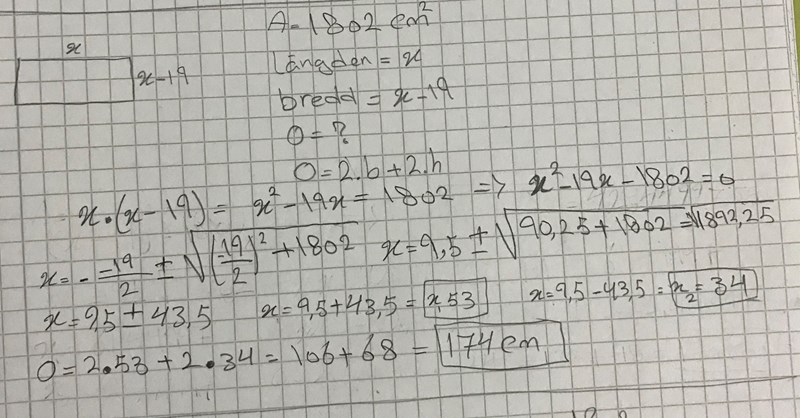 A=1802 cm²
x
längden = x
x-19
bredd = x-19
O=?
O=2.b+2.h
x•(x-19) = x²-19x = 1802 => x²-19x-1802=0
x=--19/2 ± √(-19/2)²+1802 x=9,5 ± √90,25+1802=√1892,25
x=9,5 ± 43,5 x=9,5+43,5=x,53 x=9,5-43,5=x₂=34
O=2•53+2•34=106+68=174cm